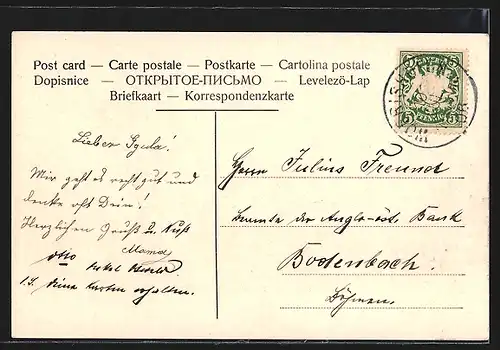 Post card — Carte postale — Postkarte — Cartolina postale
Dopisnice — ОТКРЫТОЕ-ПИСЬМО — Levelezö-Lap
Briefkaart — Korrespondenzkarte
5 PFENNIG 5
Lieber Gyula!
Mir geht es recht gut und
denke oft Dein!
Herzlichen Gruß u. Kuß
Mama
Otto
Deine Karten erhalten.
Herrn Julius Freund
Beamte der Anglo-öst. Bank
Bodenbach.
Böhmen.